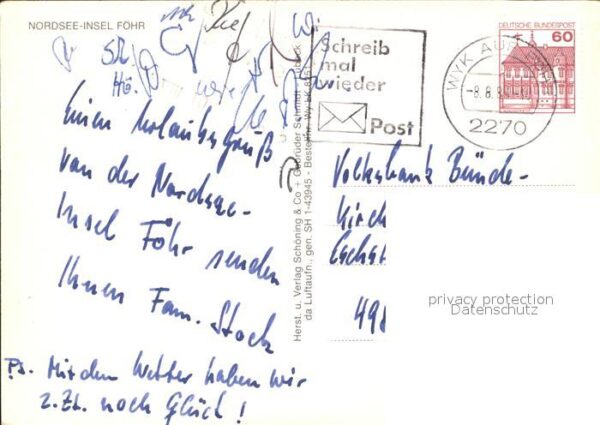 NORDSEE-INSEL FÖHR
Schreib
mal
wieder
Post
DEUTSCHE BUNDESPOST
60
WYK AUF
-8.8.8
2270
Einen Urlaubsgruß
von der Nordsee-
Insel Föhr senden
Ihnen Fam. Stock
Ps. Mit dem Wetter haben wir
z.Zt. noch Glück!
Herst. u. Verlag Schöning & Co + Gebrüder Schmidt
da Luftaufn., gen. SH 1-43945 - Bestellnr. Wy
Volksbank Bünde-
Kirch
Eschst
498
privacy protection
Datenschutz